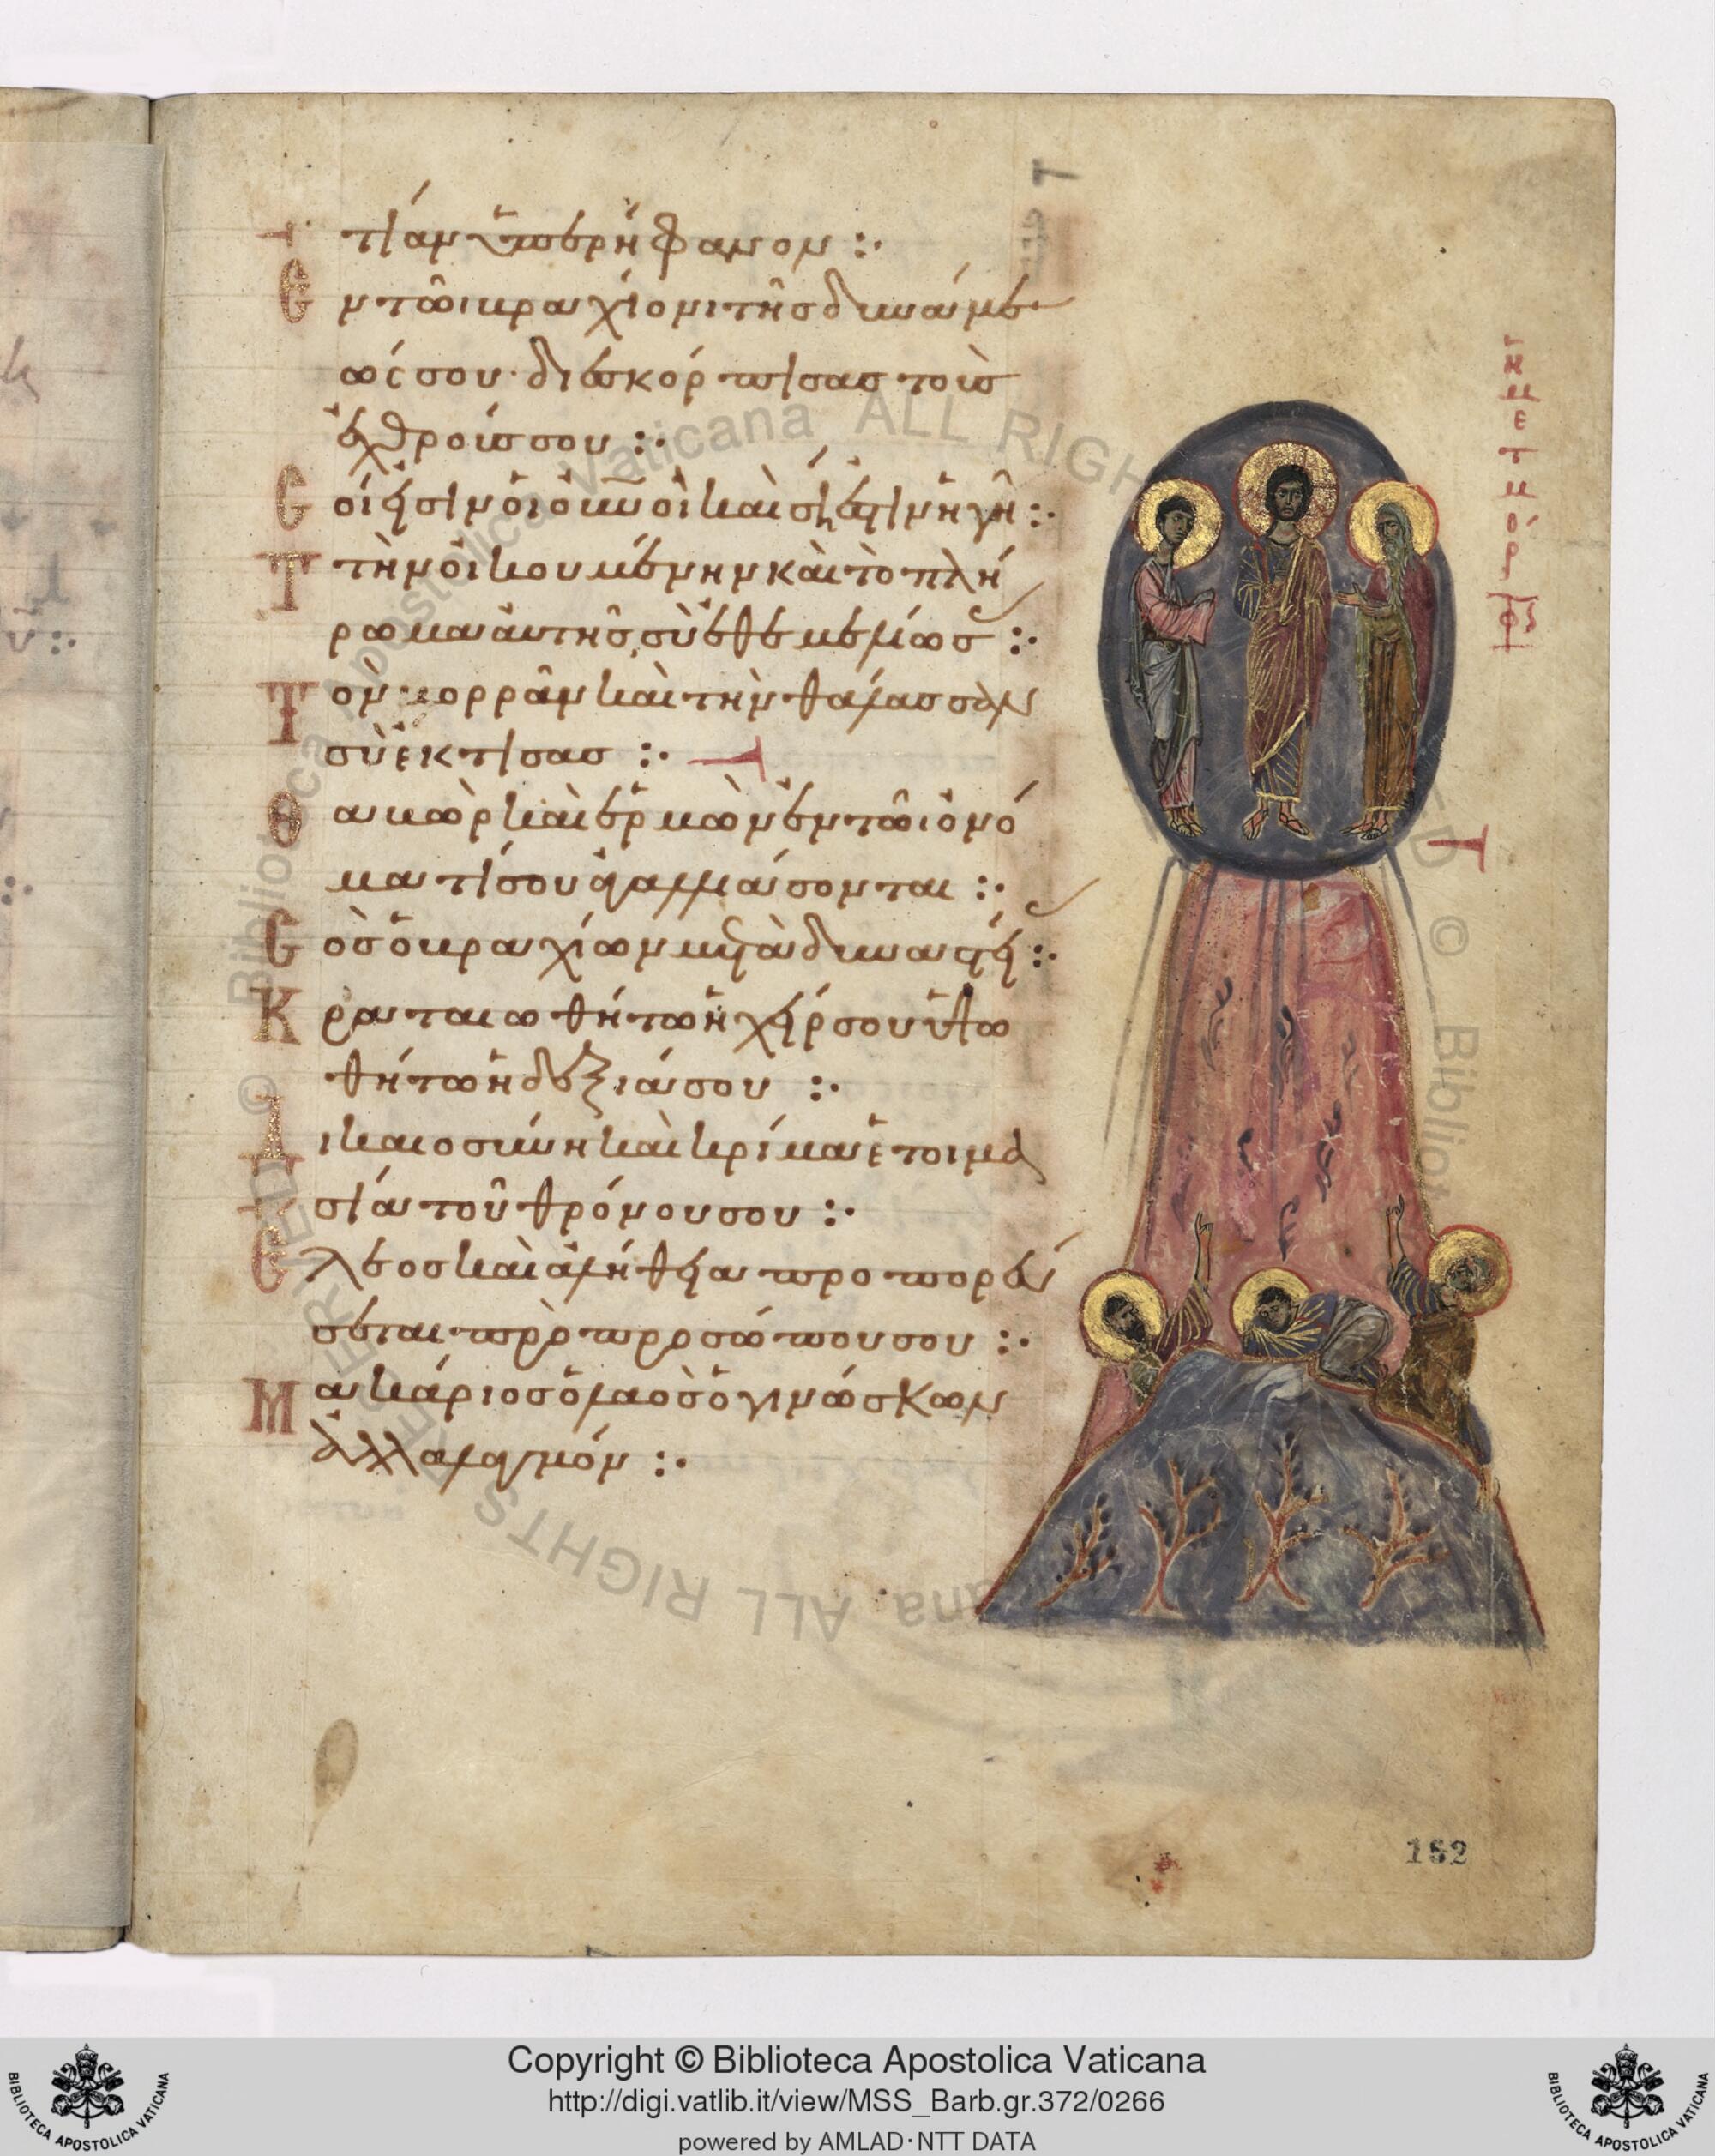 τίαν ὑπερήφανον :·
Ἐν τῶι βραχίονι τῆς δυνάμε
ώς σου· διεσκόρπισας τοὺς
ἐχθρούς σου :·
Σοί εἰσιν οἱ οὐνοὶ καὶ σή ἐστιν ἡ γῆ :·
Τὴν οἰκουμένην καὶ τὸ πλή
ρωμα αὐτῆς, σὺ ἐθεμελίωσ :·
Τὸν βορρᾶν καὶ τὴν θάλασσαν
σὺ ἔκτισας :·
Θαβὼρ καὶ Ἑρμὼν ἐν τῶι ὀνό
ματί σου ἀγαλλιάσονται :·
Σὸς ὁ βραχίων μετὰ δυναστεί :·
Κραταιωθήτω ἡ χείρ σου ὑψω
θήτω ἡ δεξιά σου :·
Δικαιοσύνη καὶ κρίμα ἑτοιμα
σία τοῦ θρόνου σου :·
Ἔλεος καὶ ἀλήθεια προπορεύ
σεται πρὸ προσώπου σου :·
Μακάριος ὁ λαὸς ὁ γινώσκων
ἀλλαλαγμόν :·
Η ΜΕΤΑΜΟΡΦ
152
Copyright © Biblioteca Apostolica Vaticana
http://digi.vatlib.it/view/MSS_Barb.gr.372/0266
powered by AMLAD·NTT DATA
BIBLIOTECA APOSTOLICA VATICANA
BIBLIOTECA APOSTOLICA VATICANA